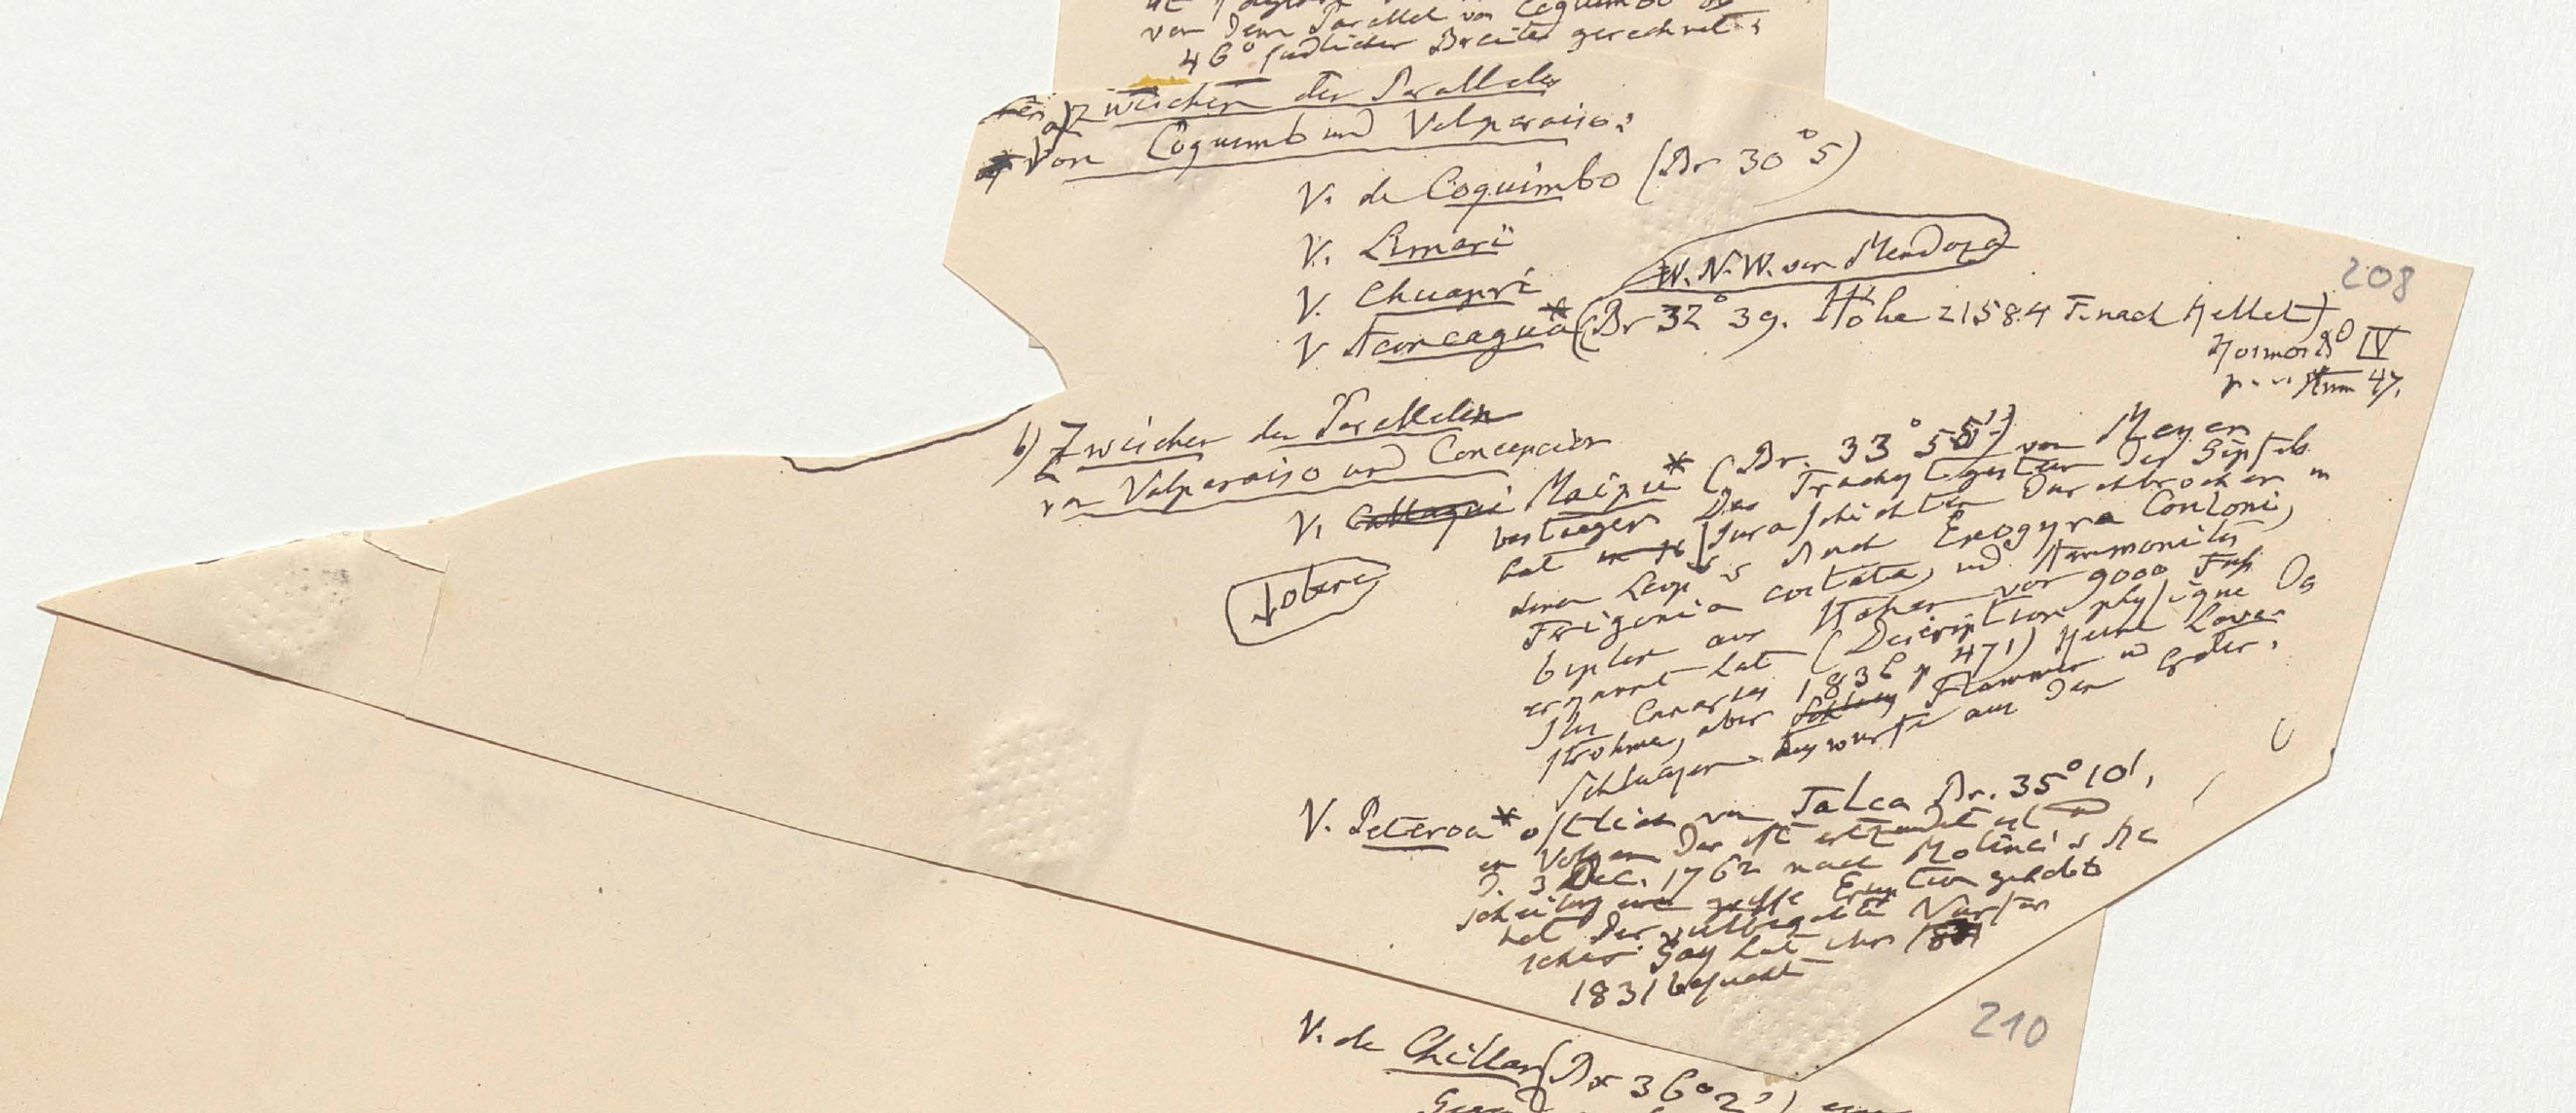 von dem Parallel von Coquimbo bis
46° südlicher Breite gerechnet:
a) Zwischen den Parallelen
von Coquimbo und Valparaiso:
V. de Coquimbo (Br 30° 5)
V. Limari
V. Chuapri
W.N.W. von Mendoza
V Aconcagua* (Br 32° 39. Höhe 21584 F. nach Kellet)
Kosmos Bd IV
Anm 47.
208
b) Zwischen den Parallelen
von Valparaiso und Concepcion
V. Callaqui Maipu* (Br. 33° 55') von Meyen
bestiegen Das Trachytgestein des Gipfels
hat Juraschichten durchbrochen in
denen Leop v Buch Exogyra Couloni,
Trigonia costata, und Ammonites
biplex aus Höhen von 9000 Fuß
erkannt hat (Description physique des
Iles Canaries 1836 p 471) Keine Lava-
ströhme, aber Flammen und
Schlacken-Auswürfe aus dem Crater.
V. Peteroa* östlich von Talca Br. 35° 10',
ein Vulkan der oft entzündet ist und
d. 3 Dec. 1762 nach Molina's Be
schreibung eine große Eruption gehabt
hat Der vielbegabte Naturfor
scher Gay hat ihn
1831 besucht
210
V. de Chillan (Br 36° 2')